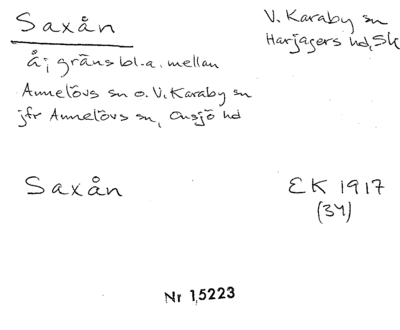 Saxån
V. Karaby sn
Harjagers hd, Sk
å; gräns bl.a. mellan
Annelövs sn o. V. Karaby sn
jfr Annelövs sn, Onsjö hd
Saxån
EK 1917
(34)
Nr 1,5223